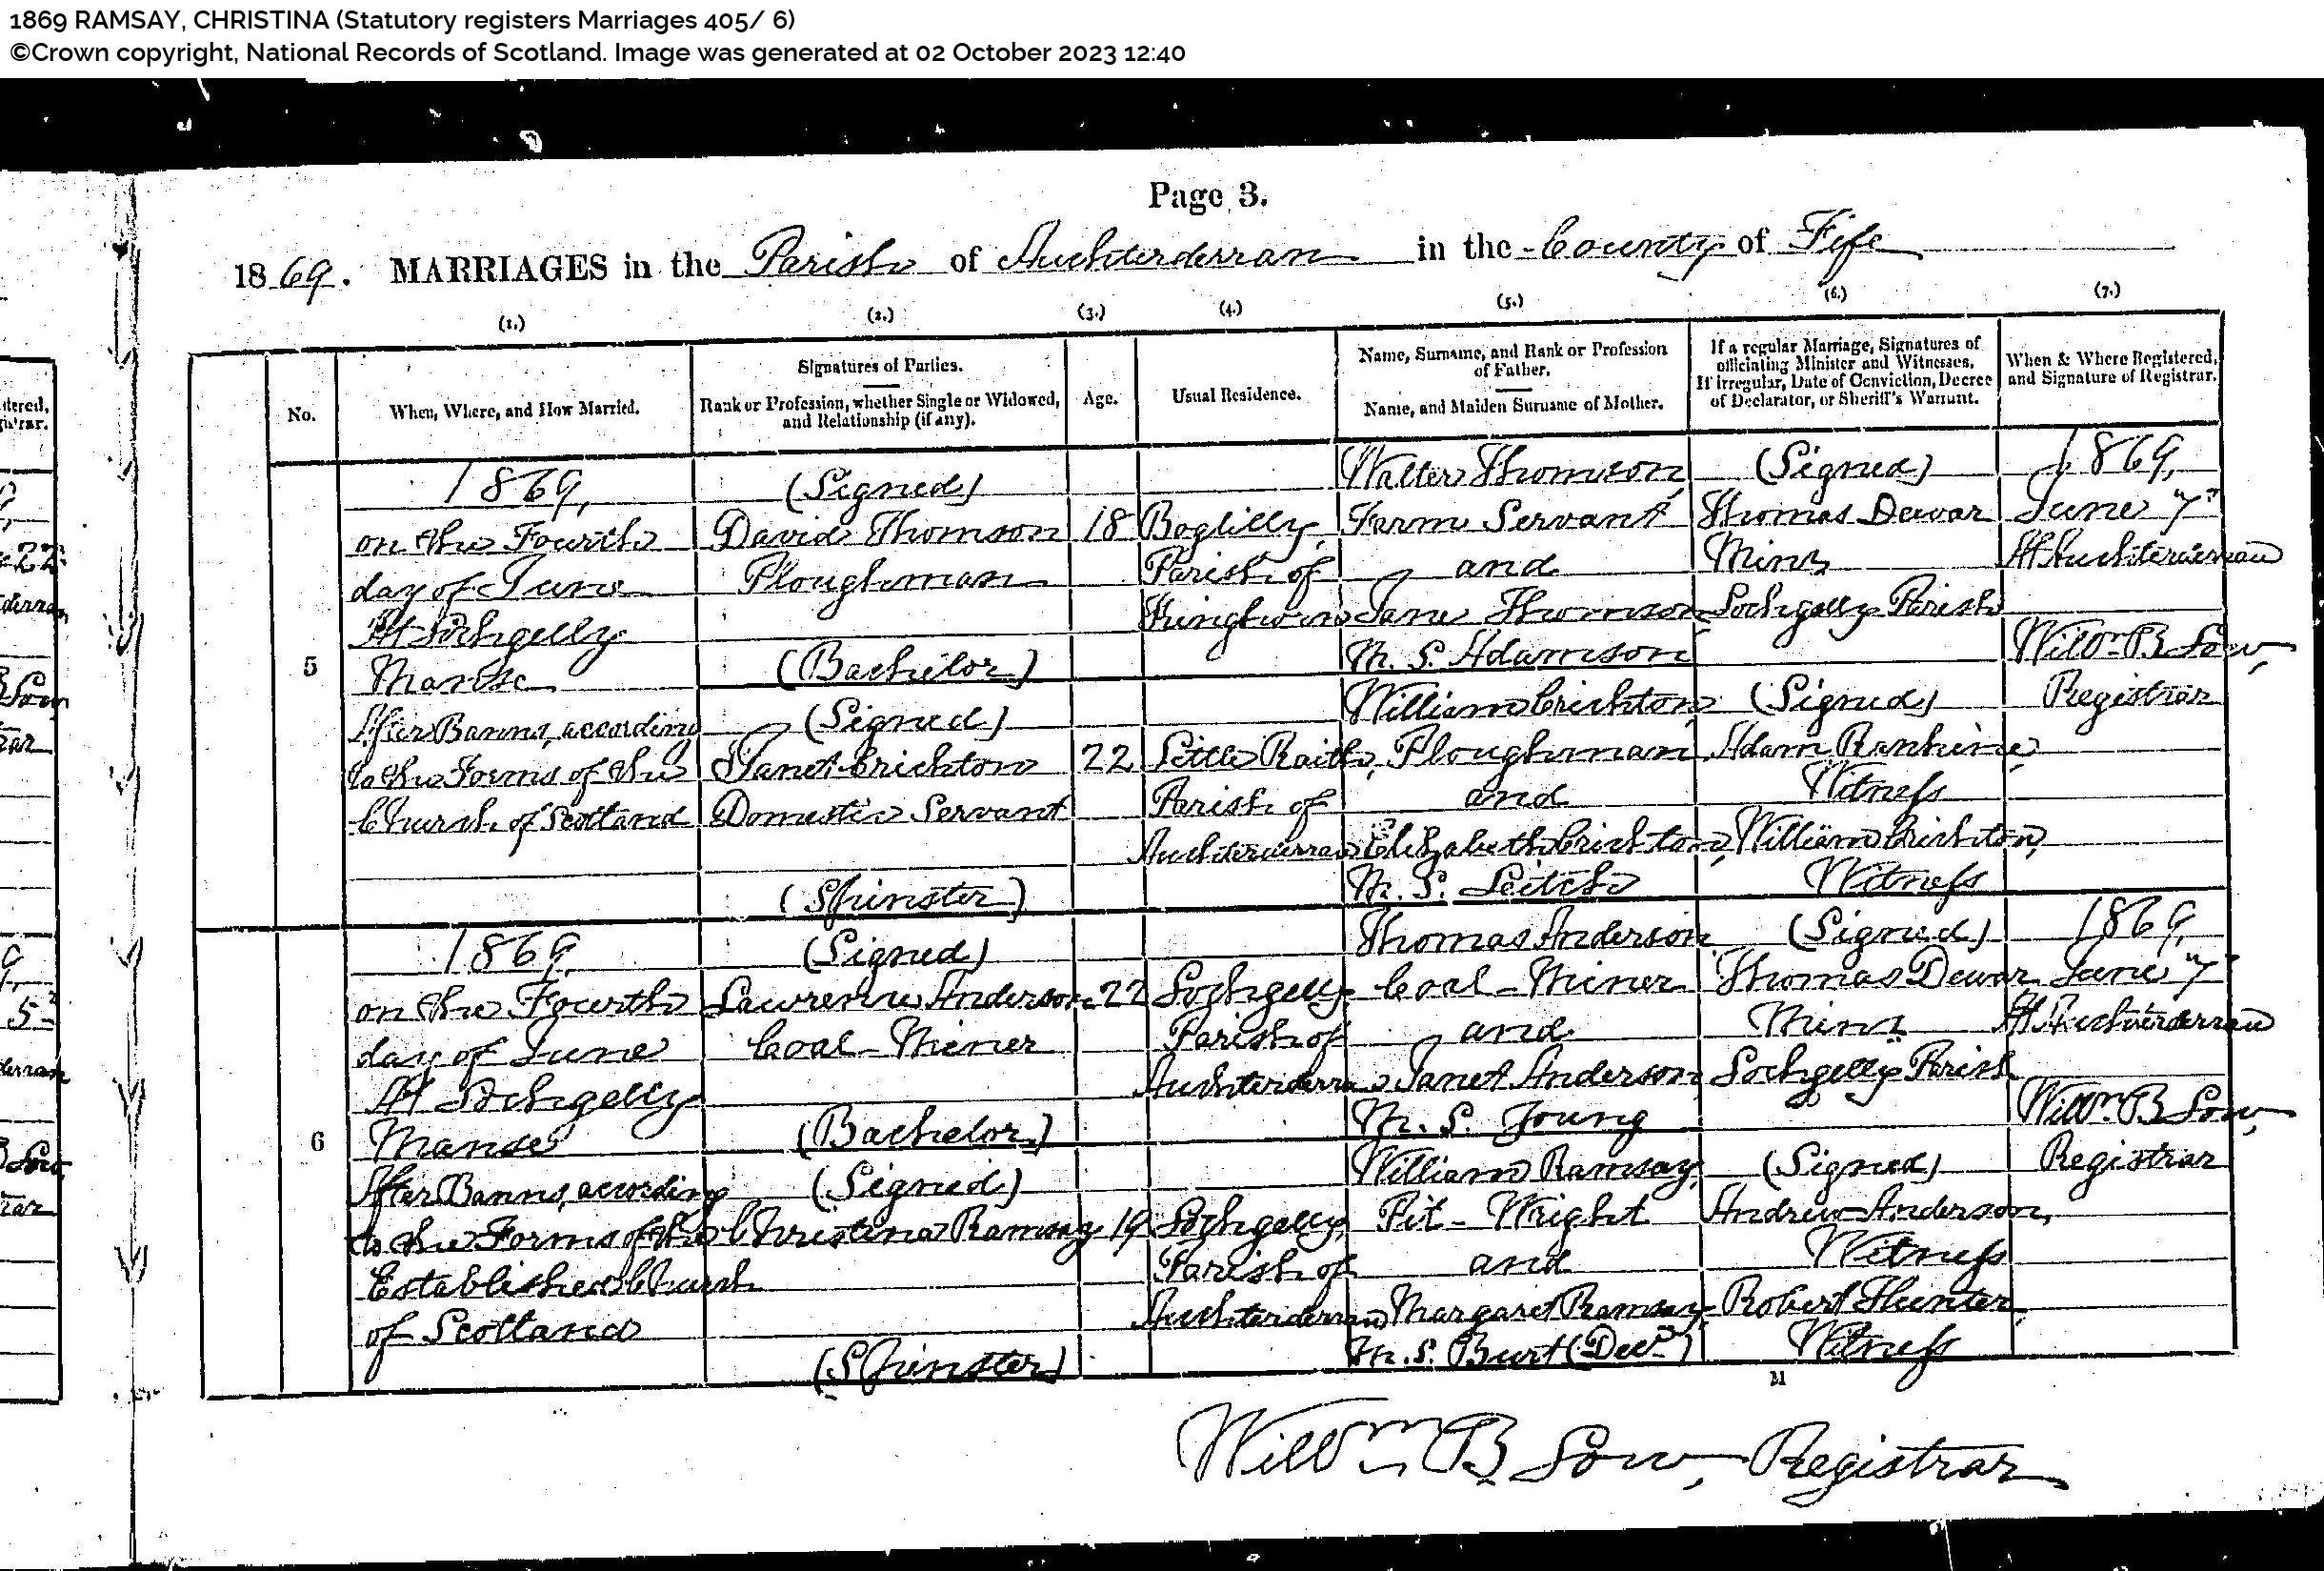 1869 RAMSAY, CHRISTINA (Statutory registers Marriages 405/ 6)
©Crown copyright, National Records of Scotland. Image was generated at 02 October 2023 12:40
Page 3.
1869. MARRIAGES in the Parish of Auchterderran in the County of Fife
(1.) (2.) (3.) (4.) (5.) (6.) (7.)
No.
When, Where, and How Married.
Signatures of Parties.
Rank or Profession, whether Single or Widowed,
and Relationship (if any).
Age.
Usual Residence.
Name, Surname, and Rank or Profession
of Father.
Name, and Maiden Surname of Mother.
If a regular Marriage, Signatures of
officiating Minister and Witnesses.
If irregular, Date of Conviction, Decree
of Declarator, or Sheriff's Warrant.
When & Where Registered,
and Signature of Registrar.
5
1869,
on the Fourth
day of June
At Lochgelly
Manse
After Banns, according
to the Forms of the
Church of Scotland
(Signed)
David Thomson
Ploughman
(Bachelor)
(Signed)
Janet Crichton
Domestic Servant
(Spinster)
18
22
Boglilly,
Parish of
Kinghorn
Little Raith,
Parish of
Auchterderran
Walter Thomson,
Farm Servant
and
Jane Thomson
M. S. Adamson
William Crichton,
Ploughman
and
Elizabeth Crichton,
M. S. Leitch
(Signed)
Thomas Dewar
Minr
Lochgelly Parish
(Signed)
Adam Rankine,
Witness
William Crichton,
Witness
1869,
June "7"
At Auchterderran
Willm B Low,
Registrar
6
1869,
on the Fourth
day of June
At Lochgelly
Manse
After Banns, according
to the Forms of the
Established Church
of Scotland
(Signed)
Lawrence Anderson
Coal-Miner
(Bachelor)
(Signed)
Christina Ramsay
(Spinster)
22
19
Lochgelly
Parish of
Auchterderran
Lochgelly,
Parish of
Auchterderran
Thomas Anderson
Coal-Miner
and
Janet Anderson,
M. S. Young
William Ramsay,
Pit-Wright
and
Margaret Ramsay,
M. S. Burt (Decd)
(Signed)
Thomas Dewar
Minr
Lochgelly Parish
(Signed)
Andrew Anderson,
Witness
Robert Hunter,
Witness
1869,
June "7"
At Auchterderran
Willm B Low,
Registrar
M
Willm B Low, Registrar